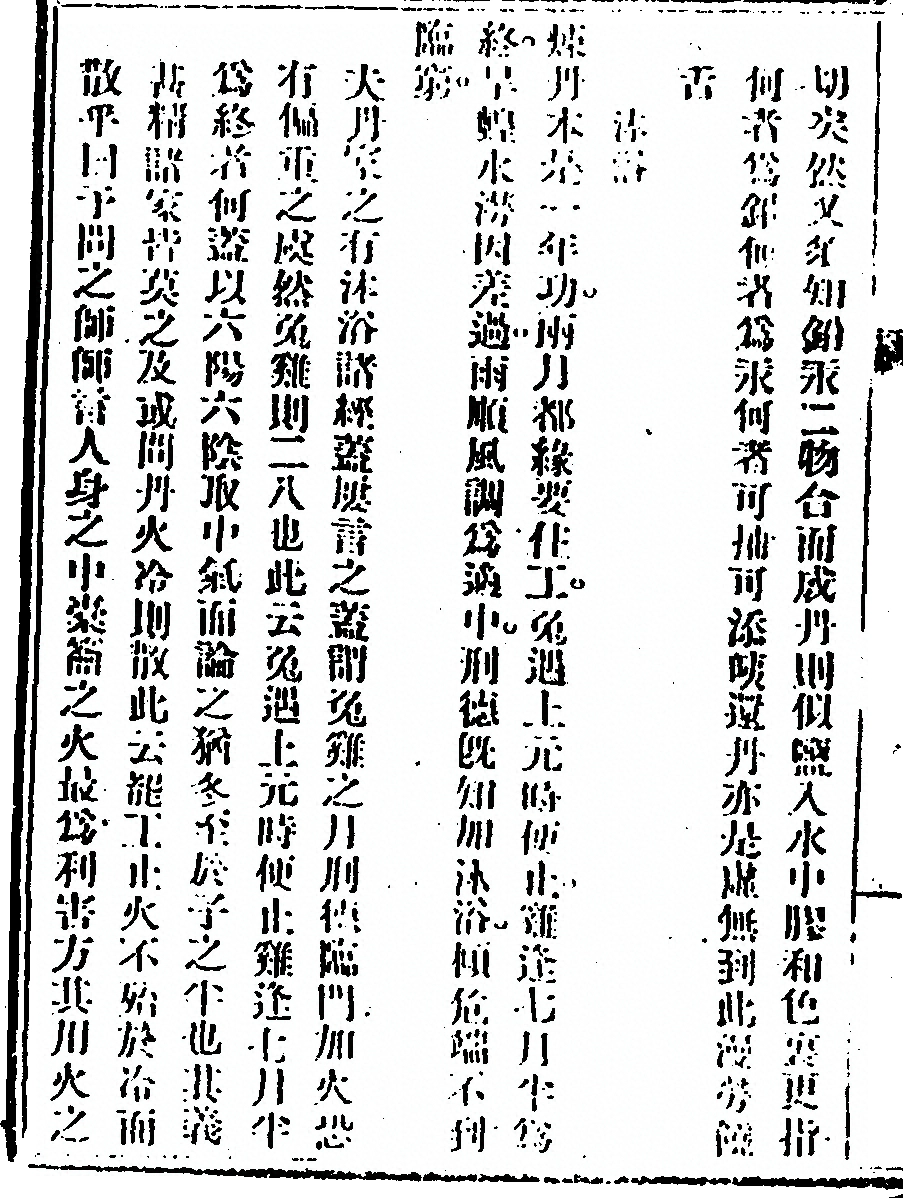 切突然又須知鉛汞二物合而成丹則似鹽入水中膠和色裏更指
何者為鉛何者為汞何者可抽可添咦還丹亦是虛無到此漫勞饒
舌
沐浴
煉丹本是一年功。兩月都緣要住工。兔遇上元時便止。雞逢七月半為
終。旱蝗水澇因差過。雨順風調為適中。刑德既知加沐浴。傾危端不到
臨窮。
夫丹室之有沐浴諸經蓋屢言之蓋謂兔雞之月刑德臨門加火恐
有偏重之虞然兔雞則二八也此云兔遇上元時便止雞逢七月半
為終者何蓋以六陽六陰取中氣而論之猶冬至於子之半也其義
甚精諸家皆莫之及或問丹火冷則散此云罷工止火不殆於冷而
散乎曰予問之師師言人身之中橐籥之火最為利害方其用火之